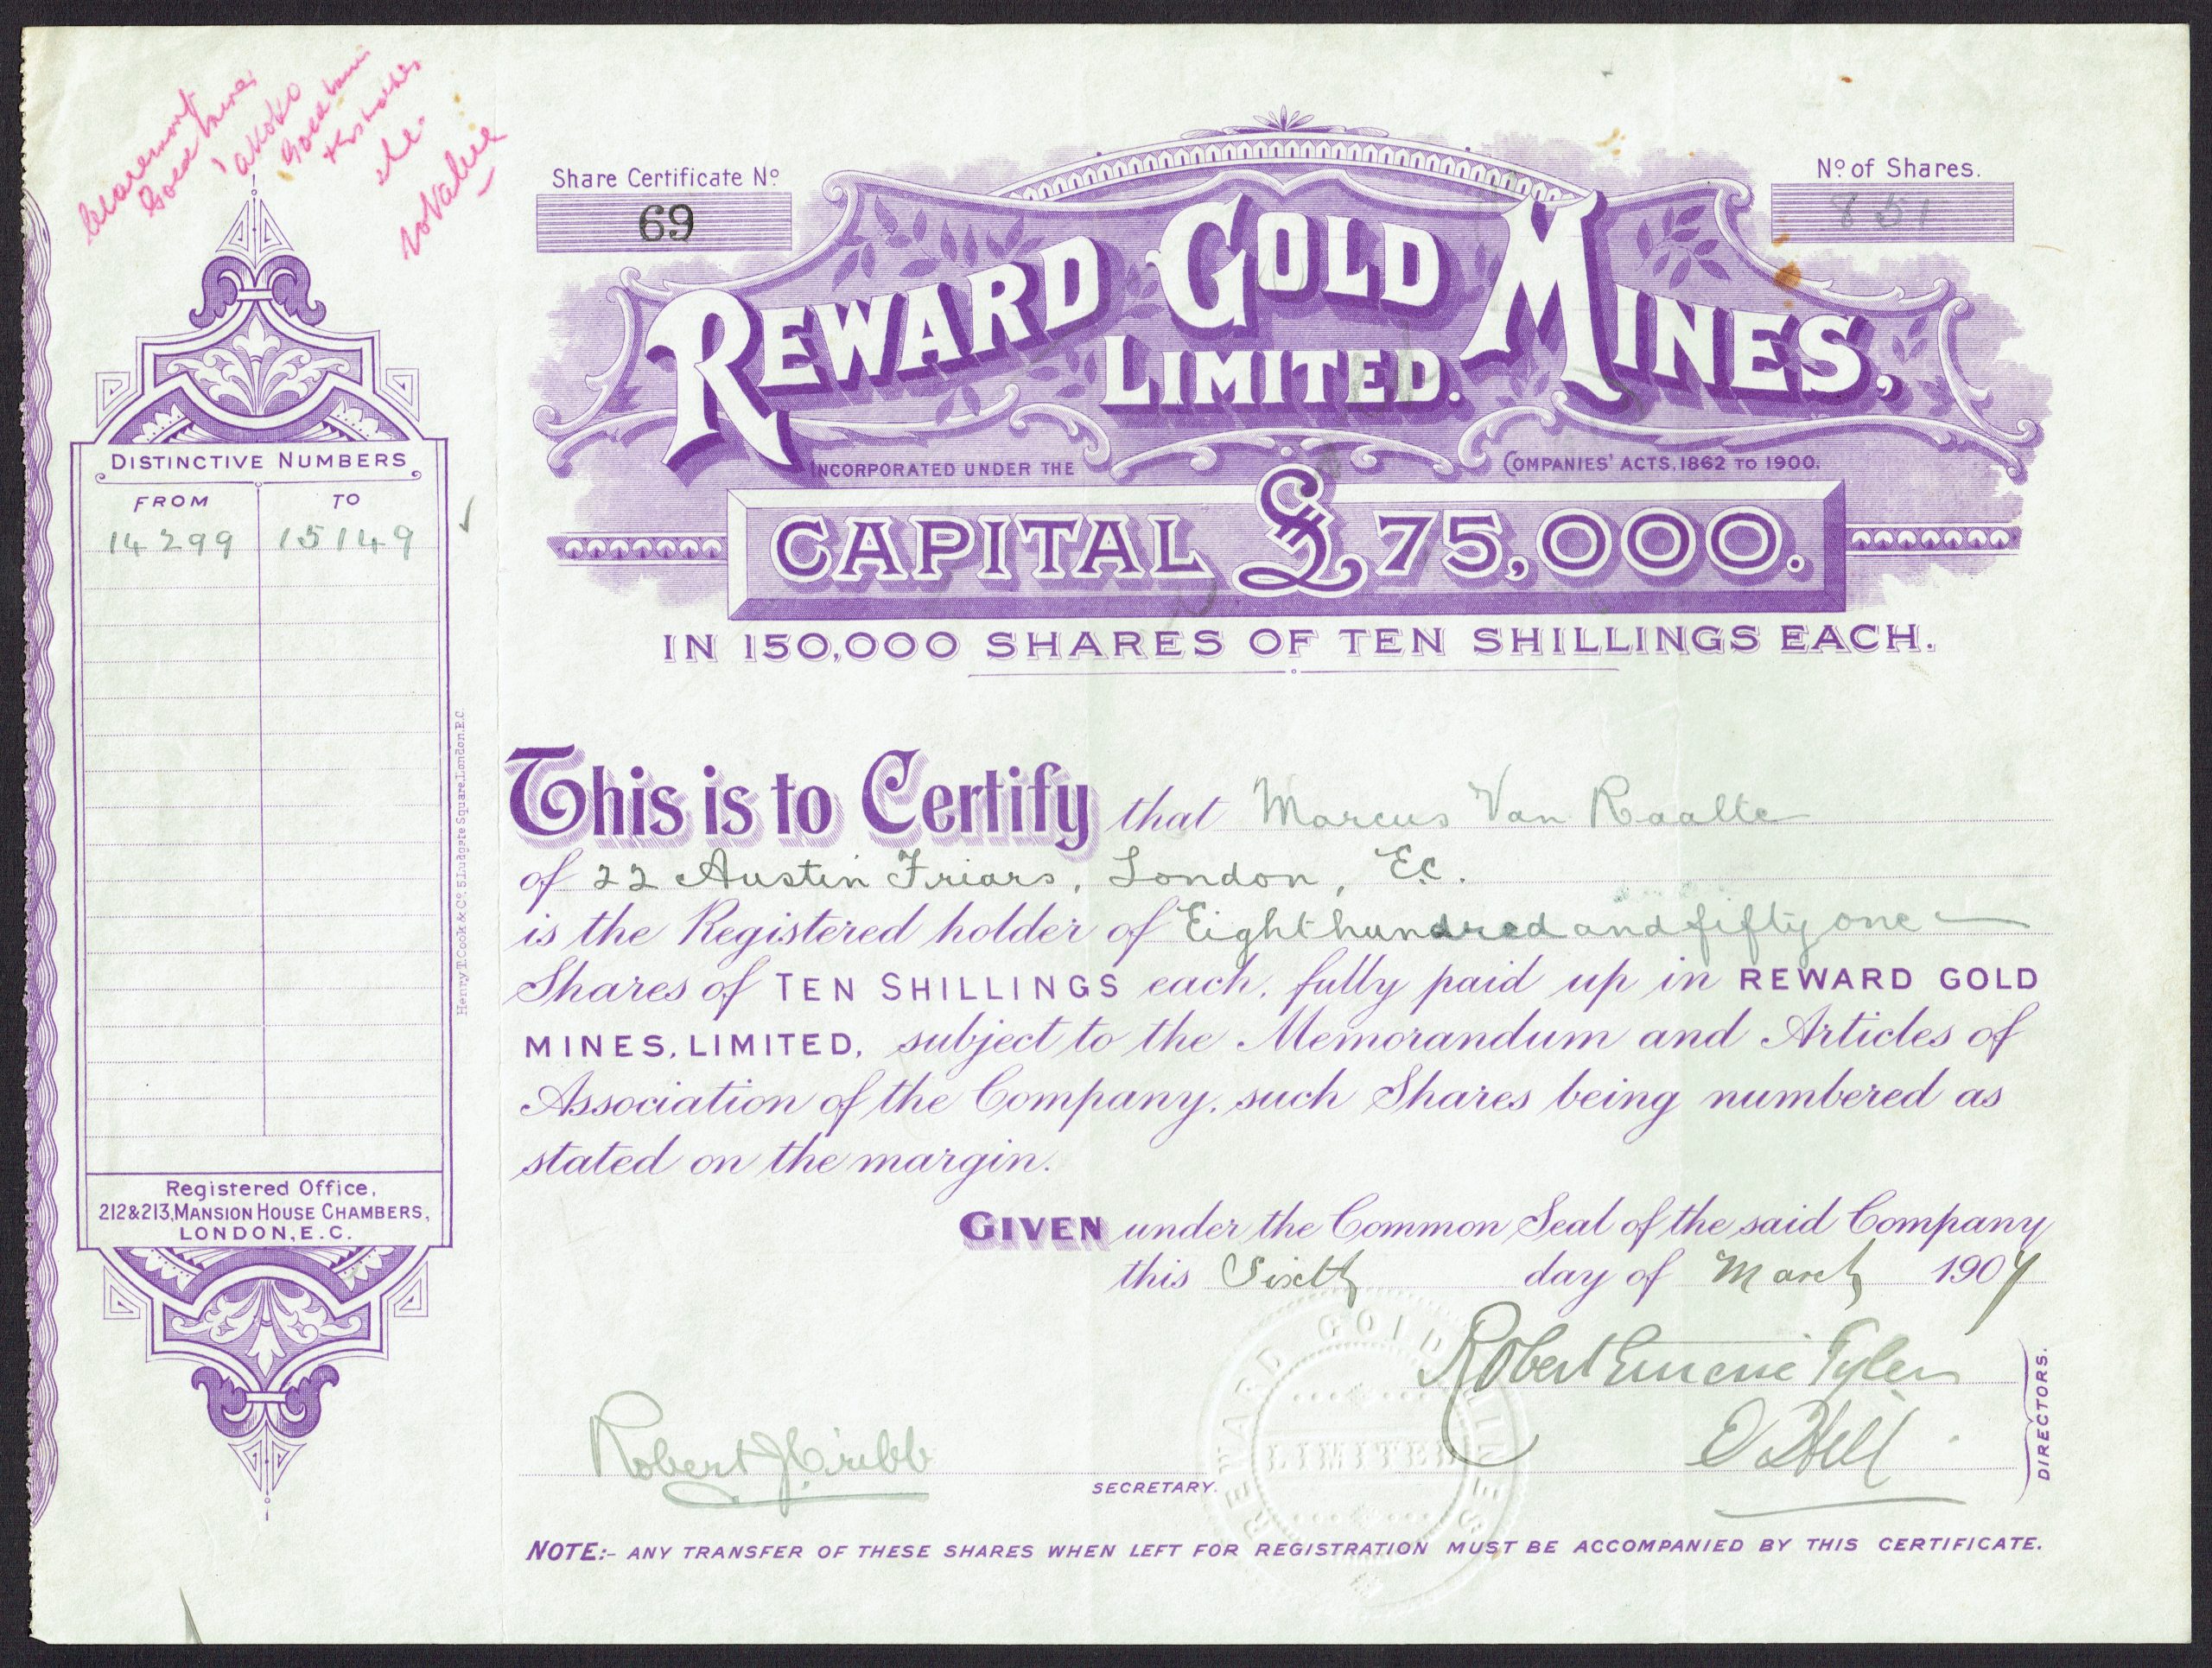 Gold Mines
no Value
Share Certificate No
69
No of Shares.
851
REWARD GOLD MINES,
LIMITED.
INCORPORATED UNDER THE COMPANIES' ACTS, 1862 TO 1900.
CAPITAL £75,000.
IN 150,000 SHARES OF TEN SHILLINGS EACH.
DISTINCTIVE NUMBERS
FROM TO
14299 15149
Henry T. Cook & Co. 51 Ludgate Square, London, E.C.
This is to Certify that Marcus Van Raalte
of 22 Austin Friars, London, E.C.
is the Registered holder of Eight hundred and fifty one
Shares of TEN SHILLINGS each, fully paid up in REWARD GOLD
MINES, LIMITED, subject to the Memorandum and Articles of
Association of the Company, such Shares being numbered as
stated on the margin.
Registered Office,
212 & 213, MANSION HOUSE CHAMBERS,
LONDON, E.C.
GIVEN under the Common Seal of the said Company
this Sixth day of March 1907
Robert Eugene Tyler
Hill
DIRECTORS.
Robert J Cribb
SECRETARY.
REWARD GOLD MINES
LIMITED
NOTE:- ANY TRANSFER OF THESE SHARES WHEN LEFT FOR REGISTRATION MUST BE ACCOMPANIED BY THIS CERTIFICATE.